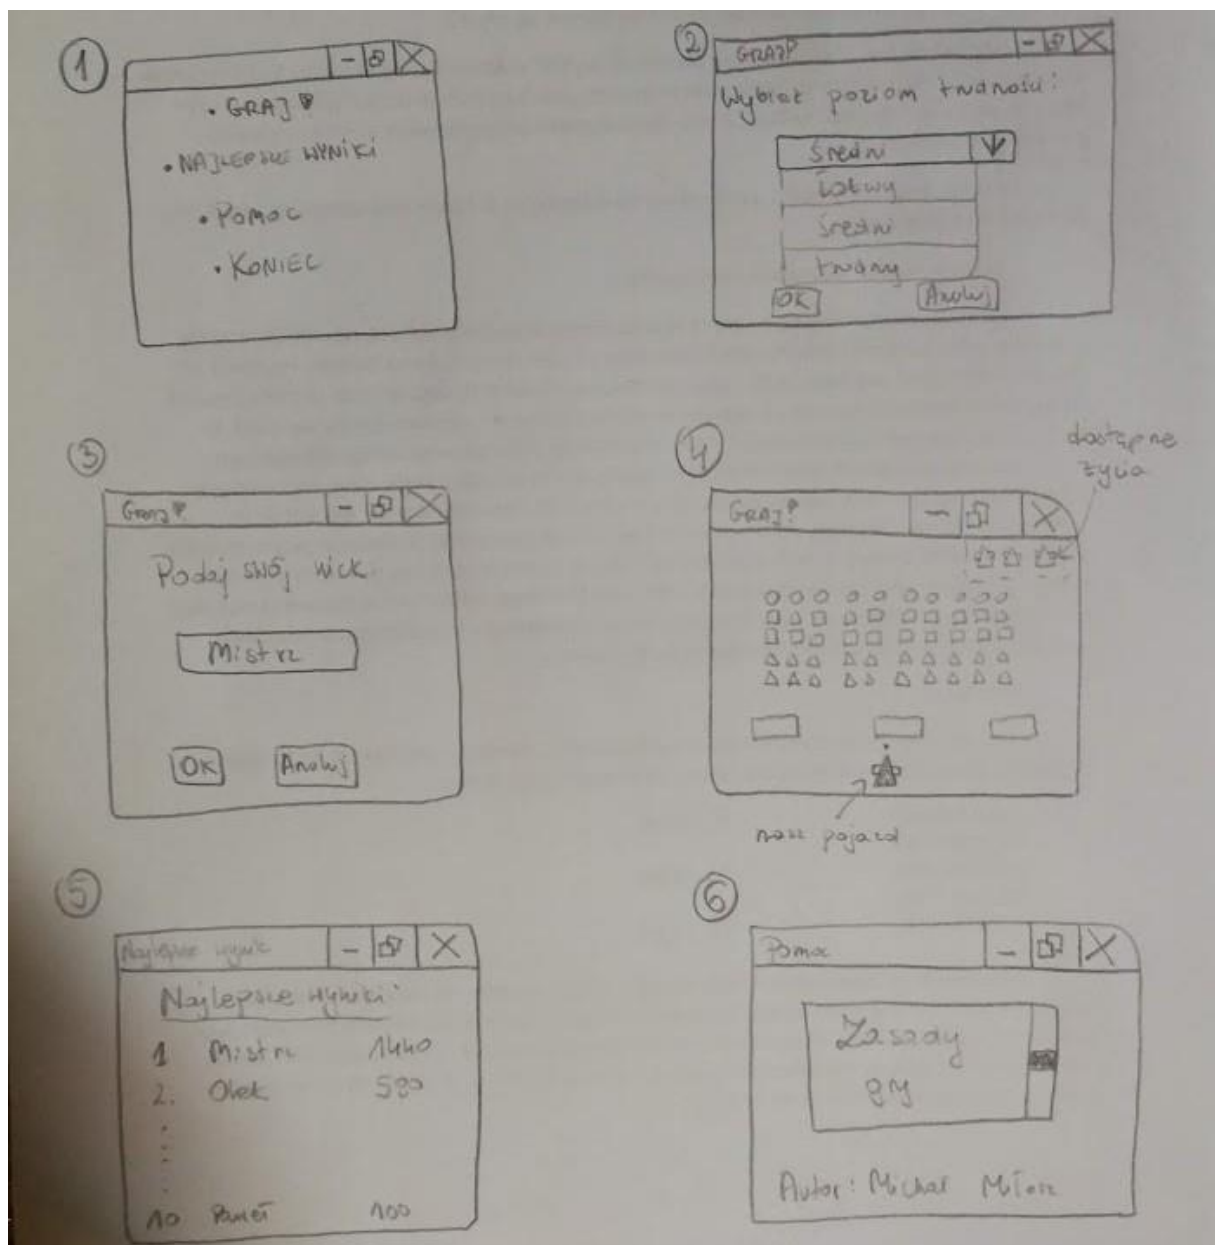 1
• GRAJ!
• NAJLEPSZE WYNIKI
• POMOC
• KONIEC
2
GRAJ!
Wybierz poziom trudności:
Średni
Łatwy
Średni
trudny
OK
Anuluj
3
Graj!
Podaj swój nick
Mistrz
OK
Anuluj
4
dostępne
życia
GRAJ!
nasz pojazd
5
Najlepsze wyniki
Najlepsze wyniki:
1 Mistrz 1440
2. Olek 580
10 Paweł 100
6
Pomoc
Zasady
gry
Autor: Michał Miłosz